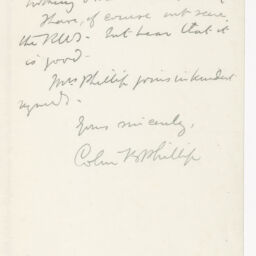 I have, of course not seen
the RWS. but hear that it
is good.
Mrs Phillip joins in kindest
regards.
Yours sincerely,
Colin B Phillip